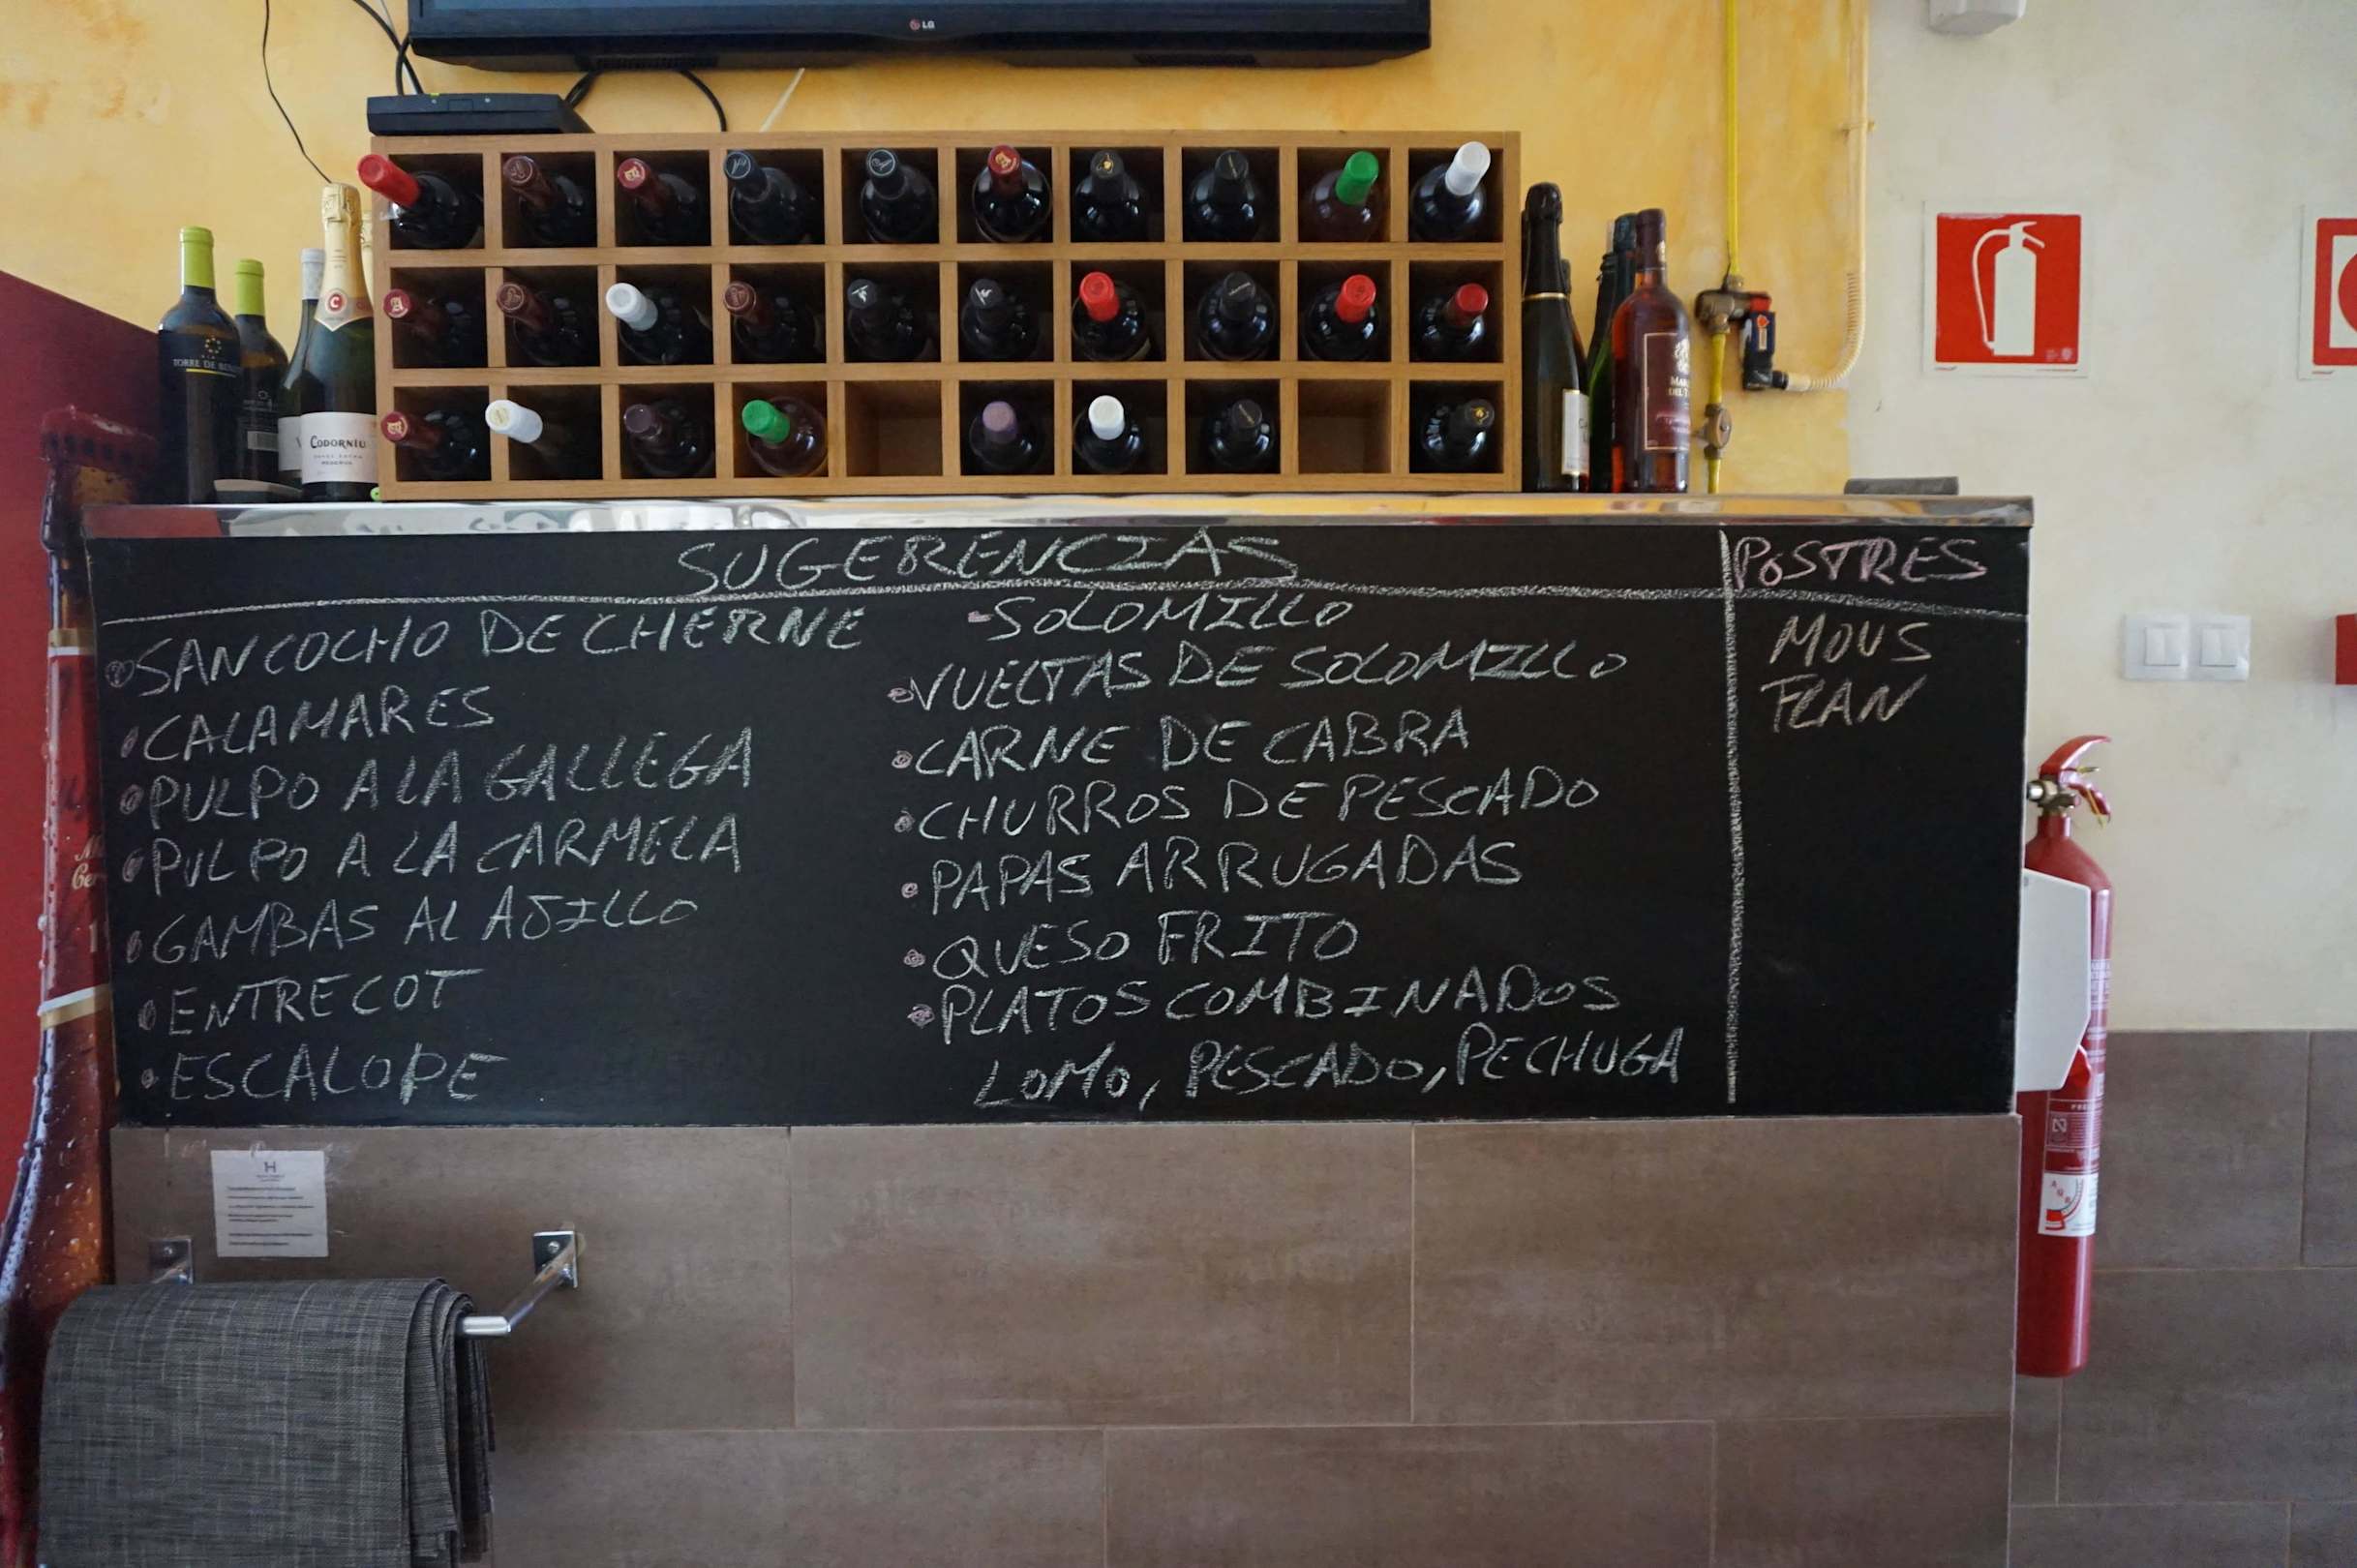 LG
TORRE DE
CODORNÍU
RESERVA
SUGERENCIAS
SANCOCHO DE CHERNE
CALAMARES
PULPO A LA GALLEGA
PULPO A LA CARMELA
GAMBAS AL AJILLO
ENTRECOT
ESCALOPE
SOLOMILLO
VUELTAS DE SOLOMILLO
CARNE DE CABRA
CHURROS DE PESCADO
PAPAS ARRUGADAS
QUESO FRITO
PLATOS COMBINADOS
LOMO, PESCADO, PECHUGA
POSTRES
MOUS
FLAN
H